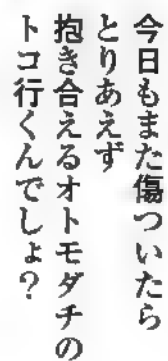 今日もまた傷ついたら
とりあえず
抱き合えるオトモダチの
トコ行くんでしょ？